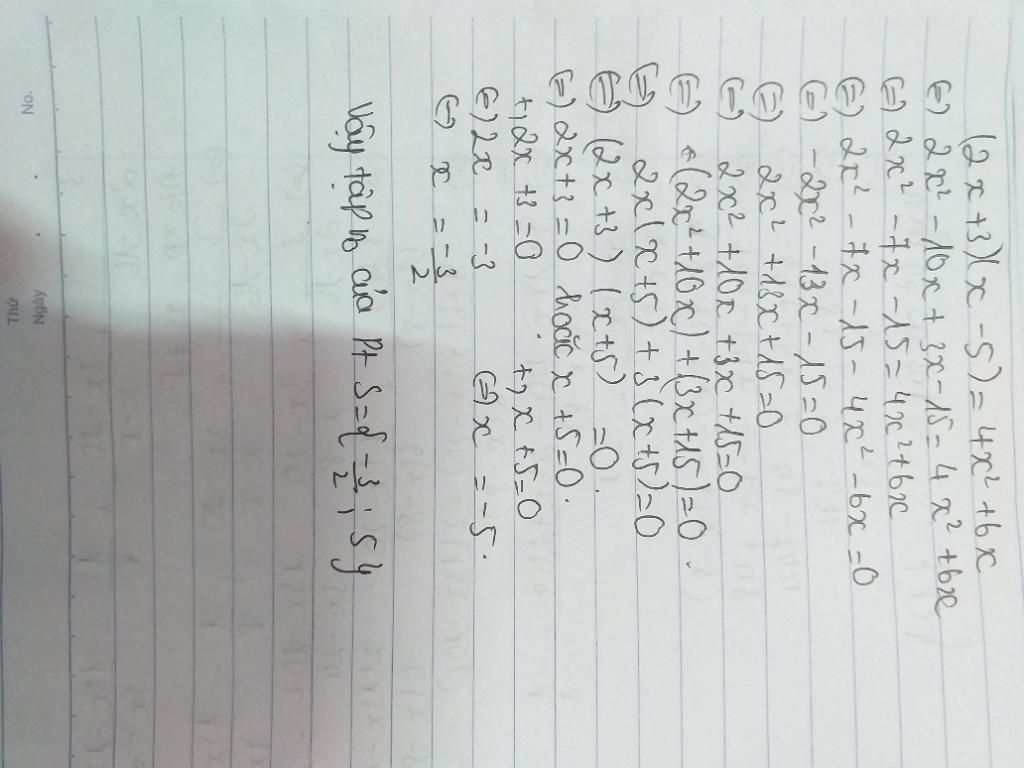 (2x+3)(x-5) = 4x² + 6x
(=) 2x² - 10x + 3x - 15 = 4x² + 6x
(=) 2x² - 7x - 15 = 4x² + 6x
(=) 2x² - 7x - 15 - 4x² - 6x = 0
(=) -2x² - 13x - 15 = 0
(=) 2x² + 13x + 15 = 0
(=) 2x² + 10x + 3x + 15 = 0
(=) (2x² + 10x) + (3x + 15) = 0.
(=) 2x(x+5) + 3(x+5) = 0
(=) (2x+3)(x+5) = 0.
(=) 2x+3 = 0 hoặc x+5 = 0.
+, 2x+3=0 +, x+5=0
(=) 2x = -3 (=) x = -5.
(=) x = -3/2
Vậy tập n₀ của Pt S = { -3/2 ; 5 }
Thứ
Ngày
No.